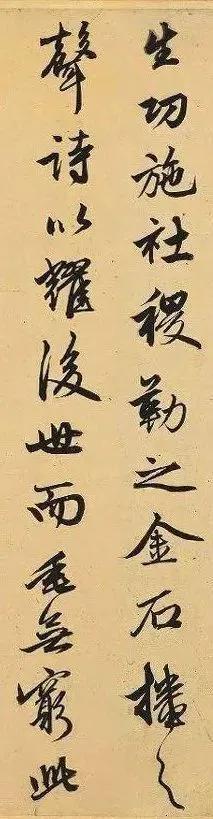 生功施社稷勒之金石播之
聲詩以耀後世而垂無窮此